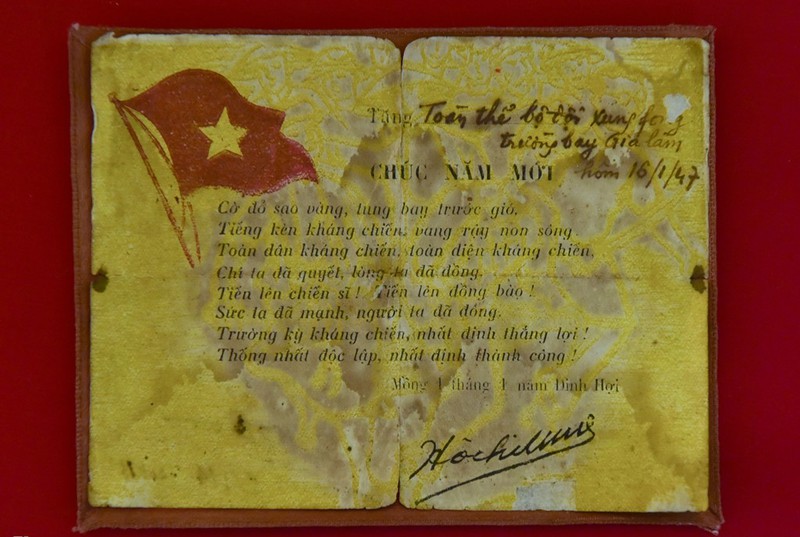 Tặng Toàn thể bộ đội xung fong
trường bay Gia lâm
CHÚC NĂM MỚI hôm 16/1/47
Cờ đỏ sao vàng, tung bay trước gió,
Tiếng kèn kháng chiến, vang rậy non sông.
Toàn dân kháng chiến, toàn diện kháng chiến,
Chí ta đã quyết, lòng ta đã đồng.
Tiến lên chiến sĩ ! Tiến lên đồng bào !
Sức ta đã mạnh, người ta đã đông.
Trường kỳ kháng chiến, nhất định thắng lợi !
Thống nhất độc lập, nhất định thành công !
Mồng 1 tháng 1 năm Đinh Hợi
Hồ Chí Minh